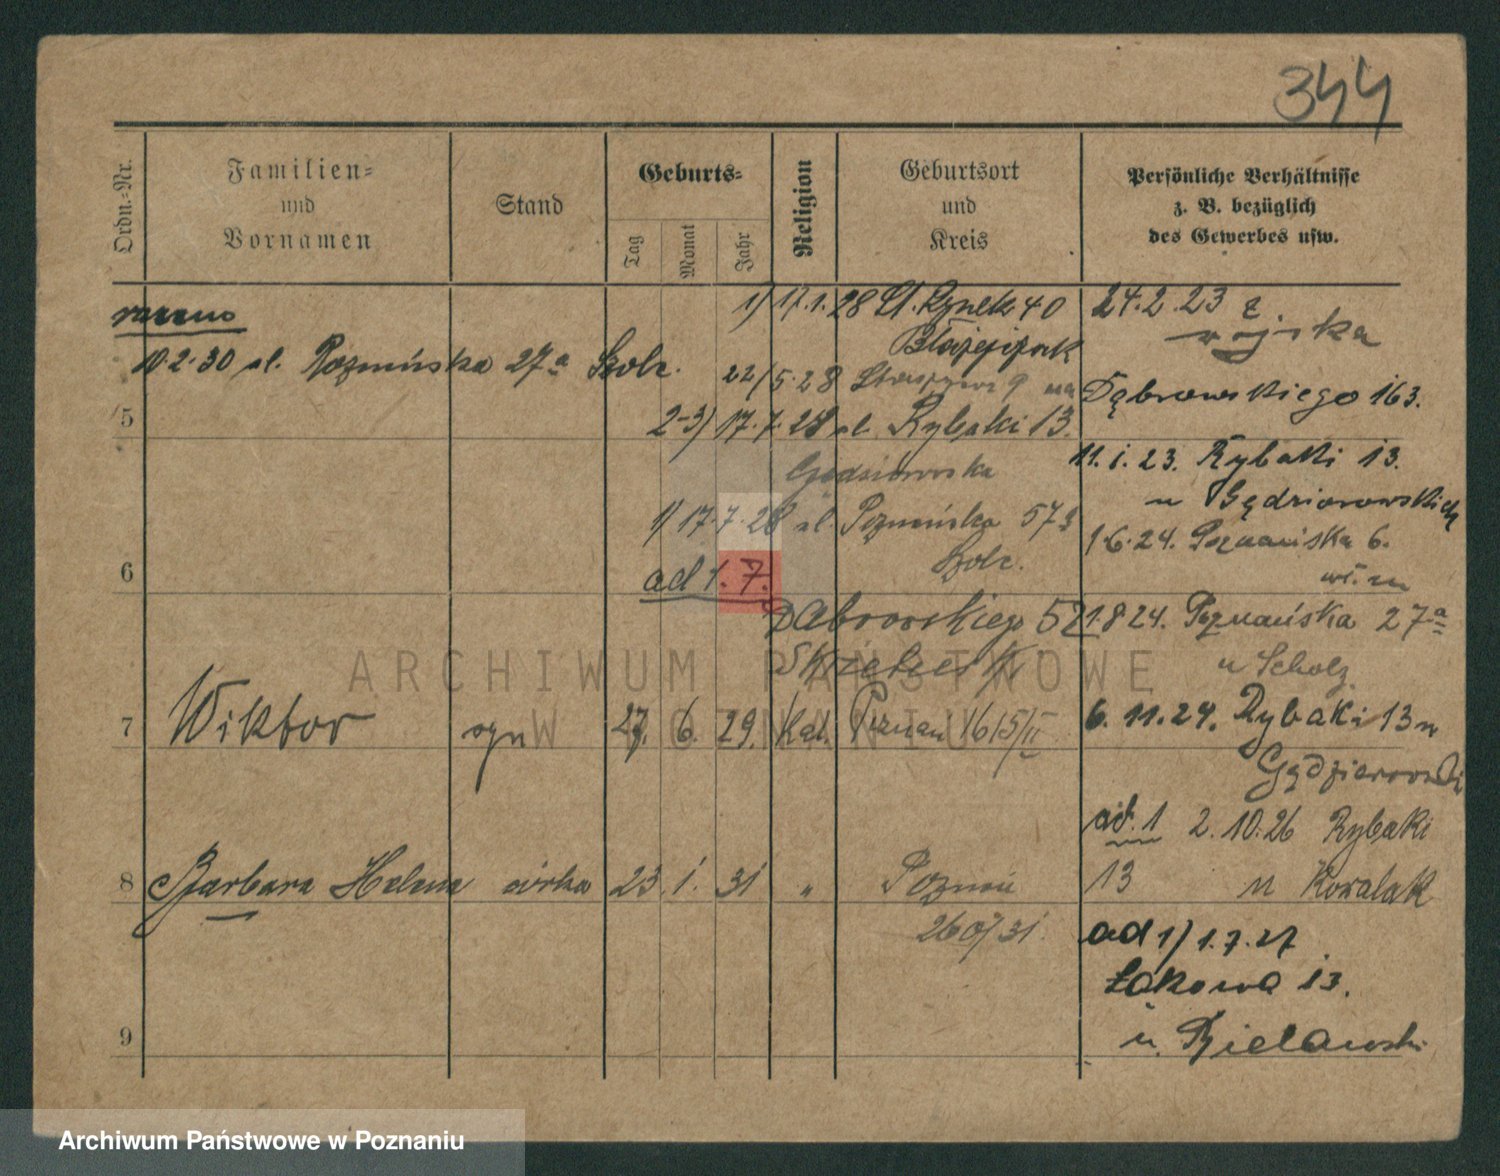 344
Ordn.-Nr.
Familien-
und
Vornamen
Stand
Geburts-
Tag
Monat
Jahr
Religion
Geburtsort
und
Kreis
Persönliche Verhältnisse
z. B. bezüglich
des Gewerbes usw.
razeno
10.2.30 ul. Poznańska 27a Szolc.
1) 17.1.28 St. Rynek 40
Błażejczak
22/5.28
2-3) 17.7.28 ul. Rybaki 13.
Gędziorowska
1) 17.7.28 ul. Poznańska 57a
Szolc.
ad 1.7.
Dąbrowskiego 52
5
6
7 Wiktor syn 27. 6. 29. kat. Poznań 1615/II
8 Barbara Helena córka 23. 1. 31 " Poznań
260/31.
9
24.2.23 z.
wojska
Dąbrowskiego 163.
11.1.23. Rybaki 13.
u Gędziorowskich
1.6.24. Poznańska 6.
1.8.24. Poznańska 27a
u Scholz
6.11.24. Rybaki 13 u
Gędziorowski
ad. 1 2.10.26 Rybaki
13 u Kowalak
ad 1) 1.7.27
Łąkowa 13.
u. Bielawski
ARCHIWUM PAŃSTWOWE
W POZNANIU
Archiwum Państwowe w Poznaniu